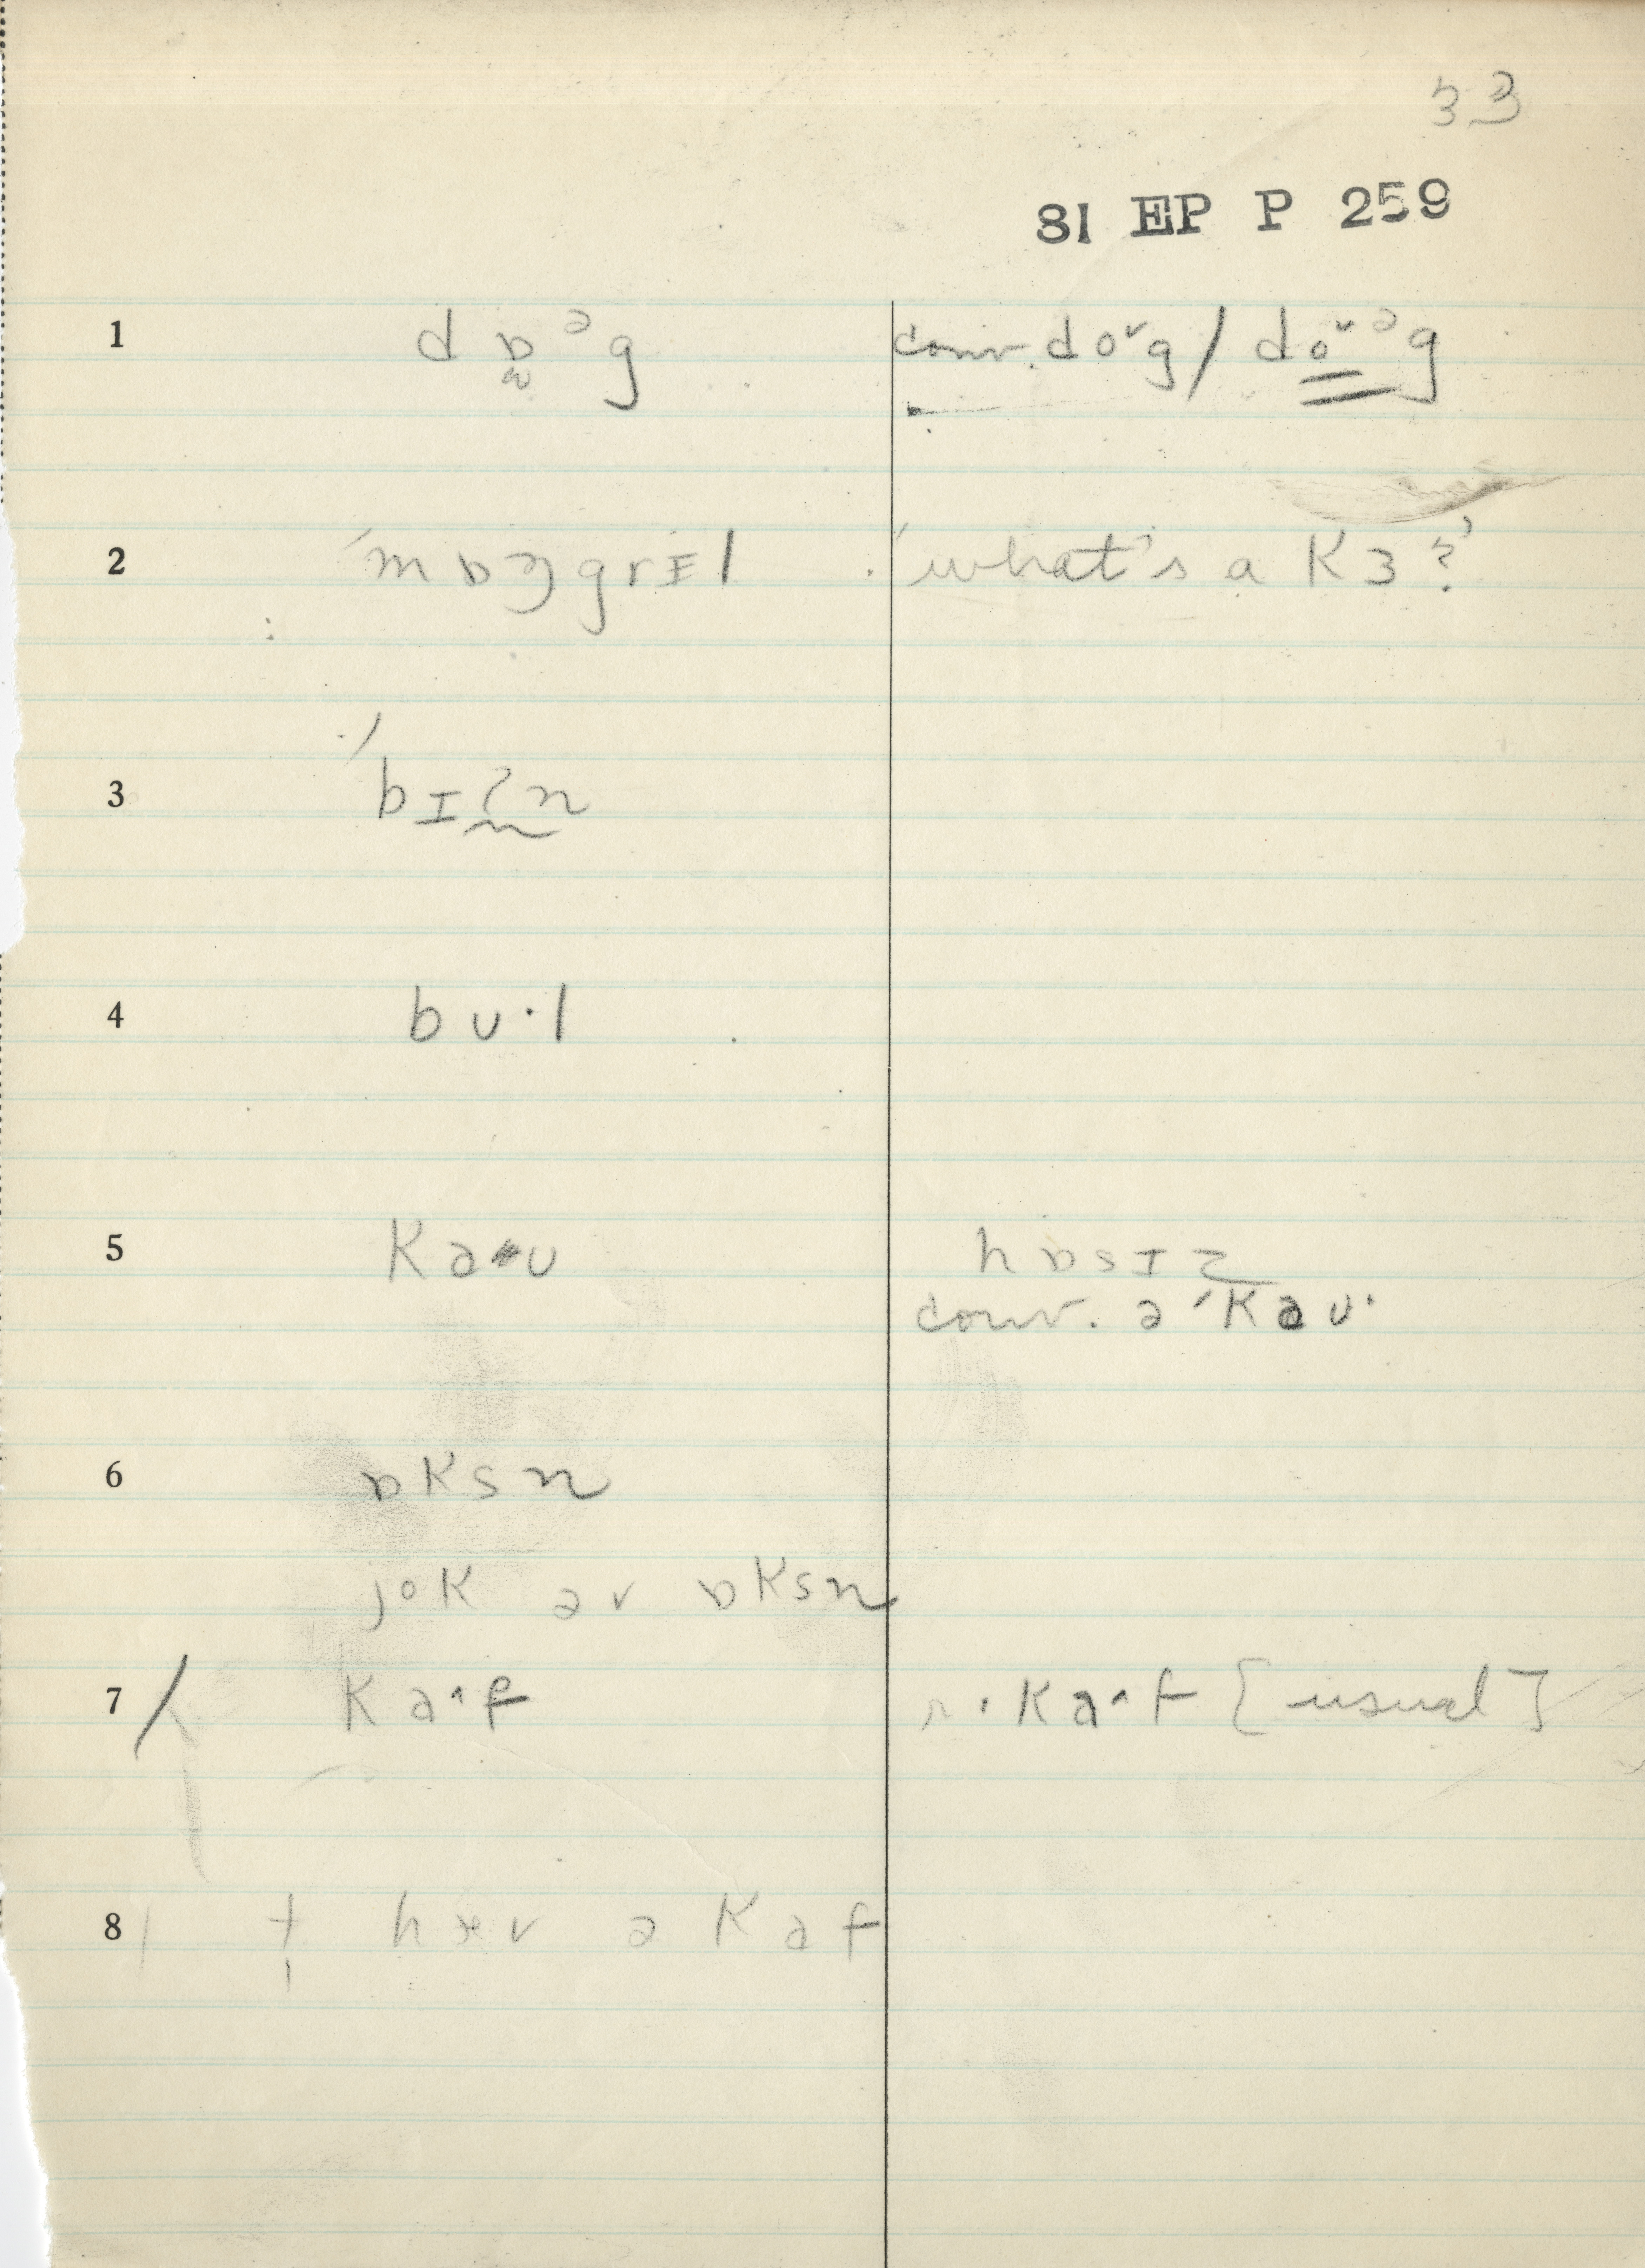 33
81 EP P 259
1 dɒ̫ᵊg conv. do˅g / do̳˅ᵊg
2 ˈmɒŋgrɪl 'what's a K3?'
3 ˈbɪ
4 bʊ·l
5 kaʊ hɒsɪz
conv. ə ˈkaʊ·
6 ɒksn
jok əv ɒksn
7 / ka˄f ka˄f [usual]
8 hæv ə kaf